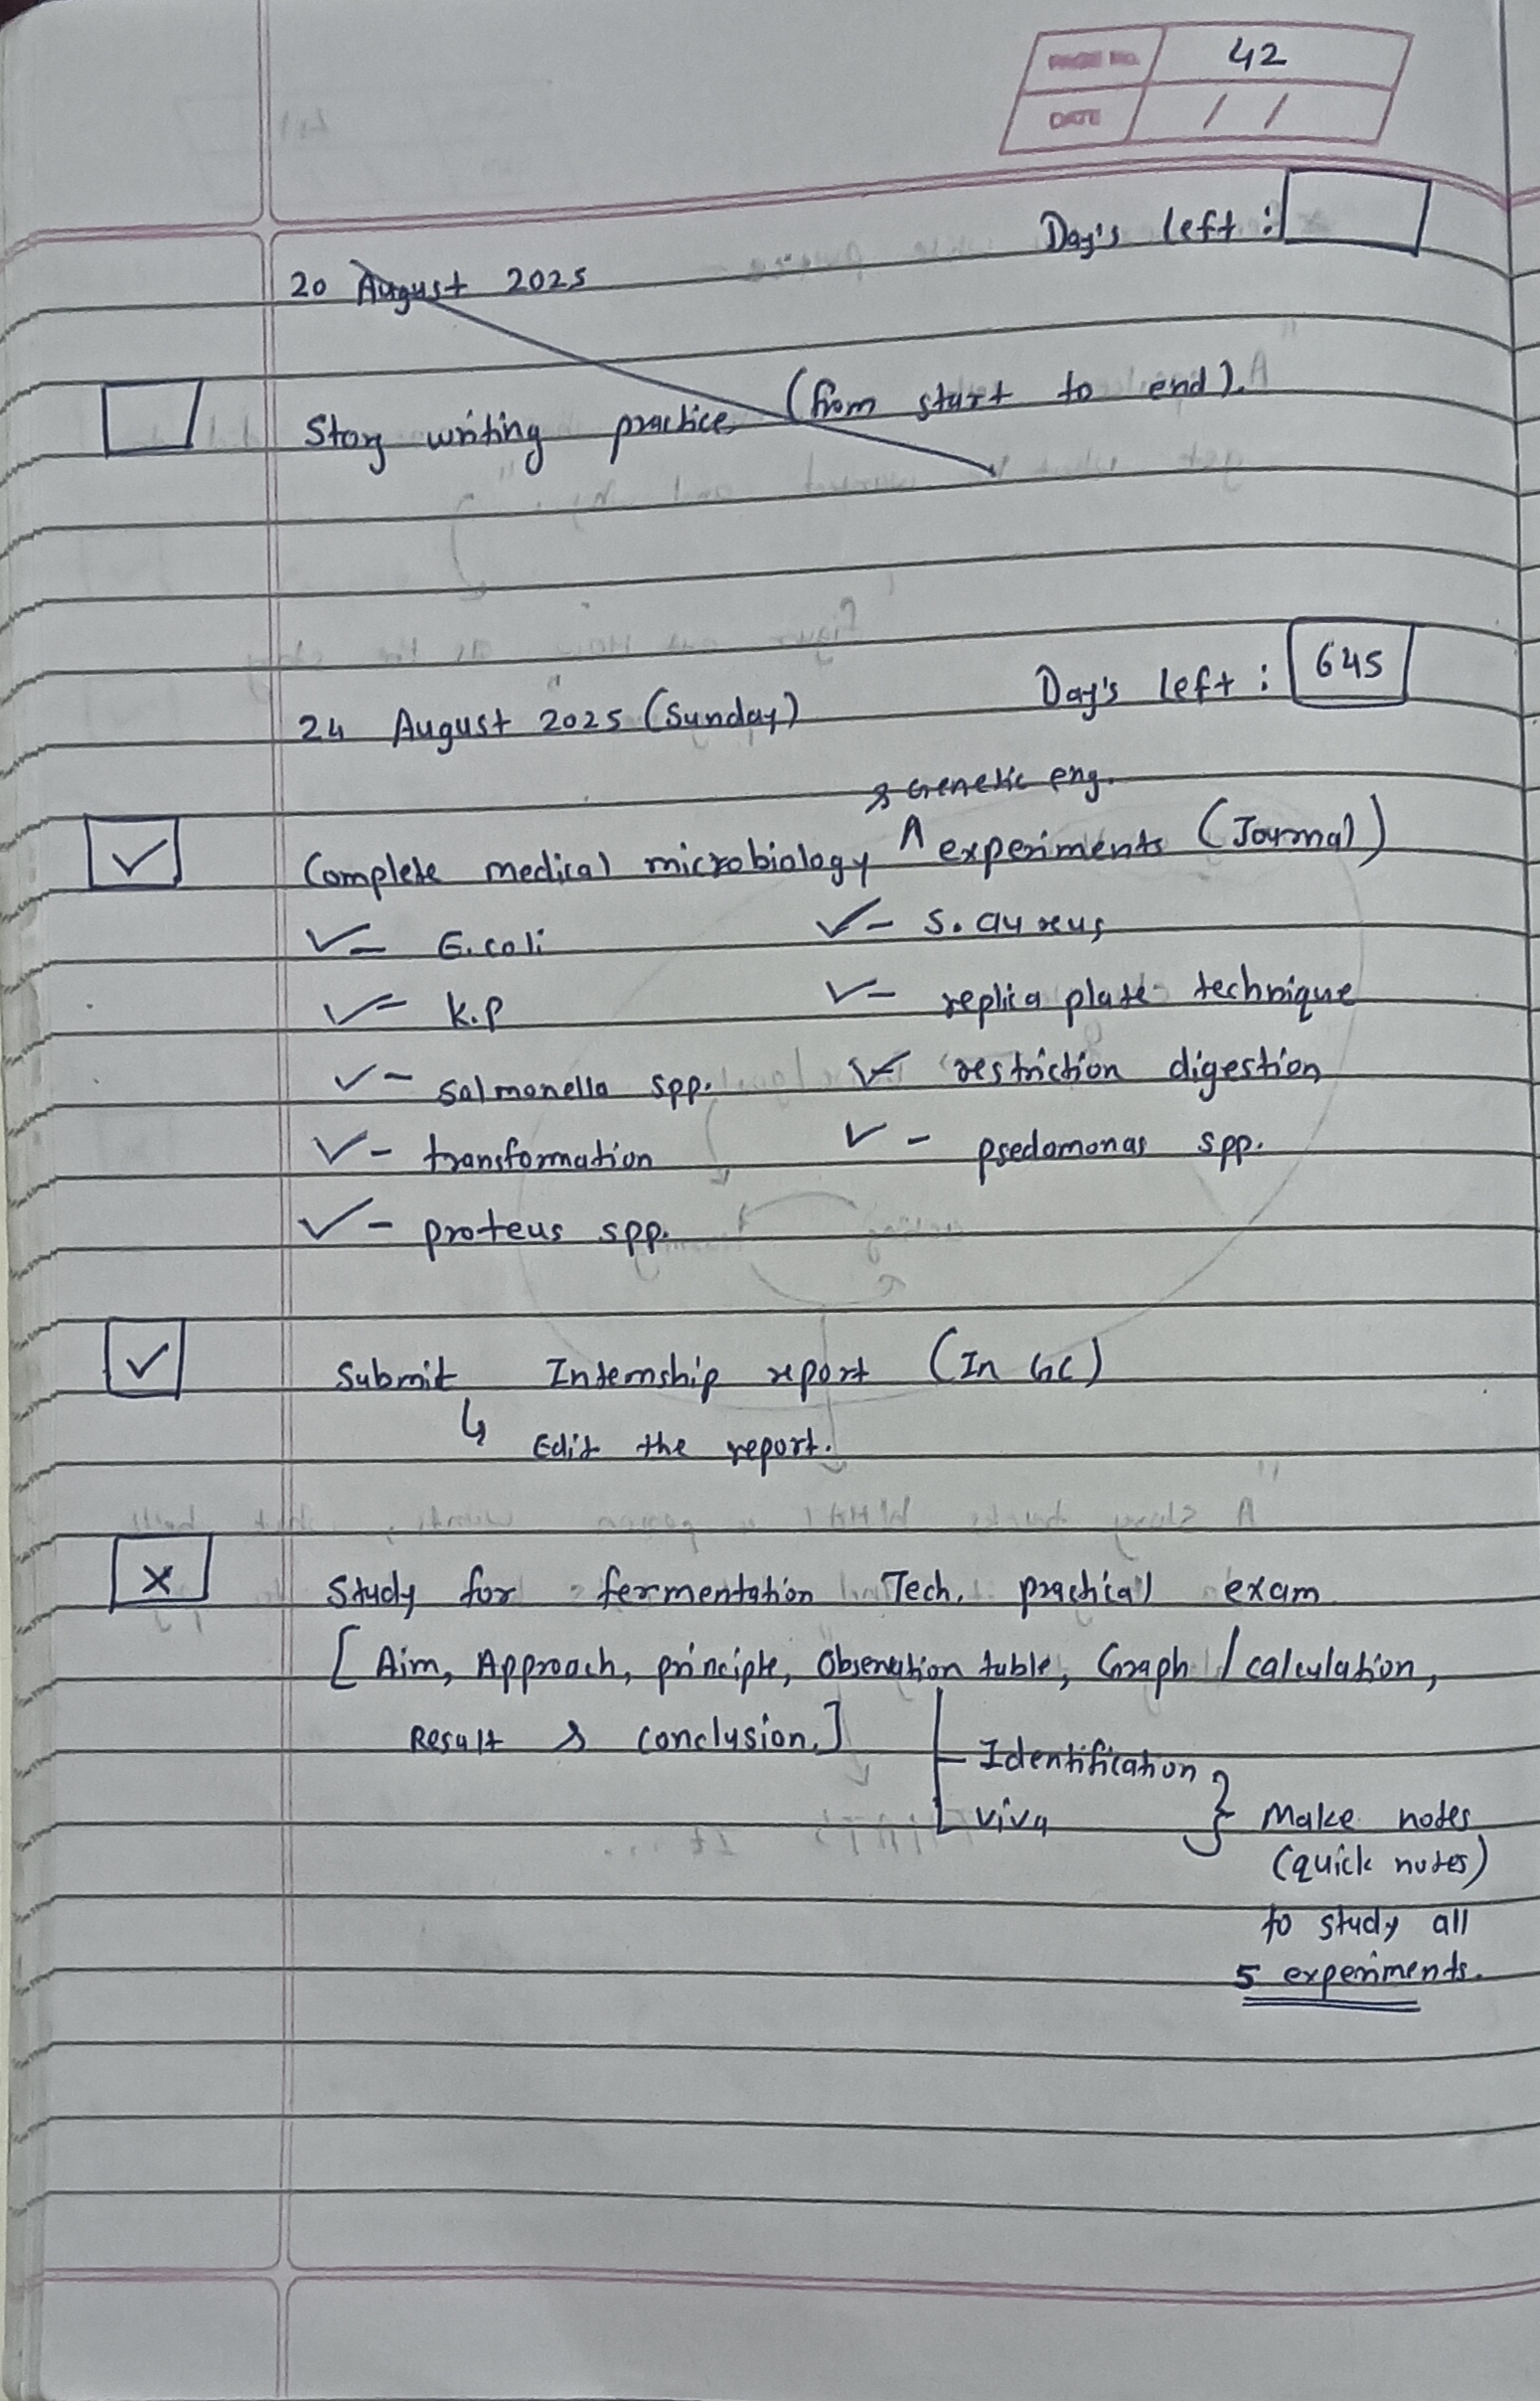 PAGE NO. 42
DATE / /
Day's left :
20 August 2025
Story writing practice (from start to end).
Day's left : 645
24 August 2025 (Sunday)
& Genetic eng.
Complete medical microbiology ^ experiments (Journal)
✓ - E. coli ✓ - S. aureus
✓ - K.p ✓ - replica plate technique
✓ - Salmonella spp. ✓ - restriction digestion
✓ - transformation ✓ - psedomonas spp.
✓ - proteus spp.
✓ Submit Internship report (In GC)
↳ Edit the report.
x Study for fermentation Tech. practical exam
[ Aim, Approach, principle, Observation table, Graph / calculation,
Result & conclusion.]
Identification
viva } Make notes
(quick notes)
to study all
5 experiments.